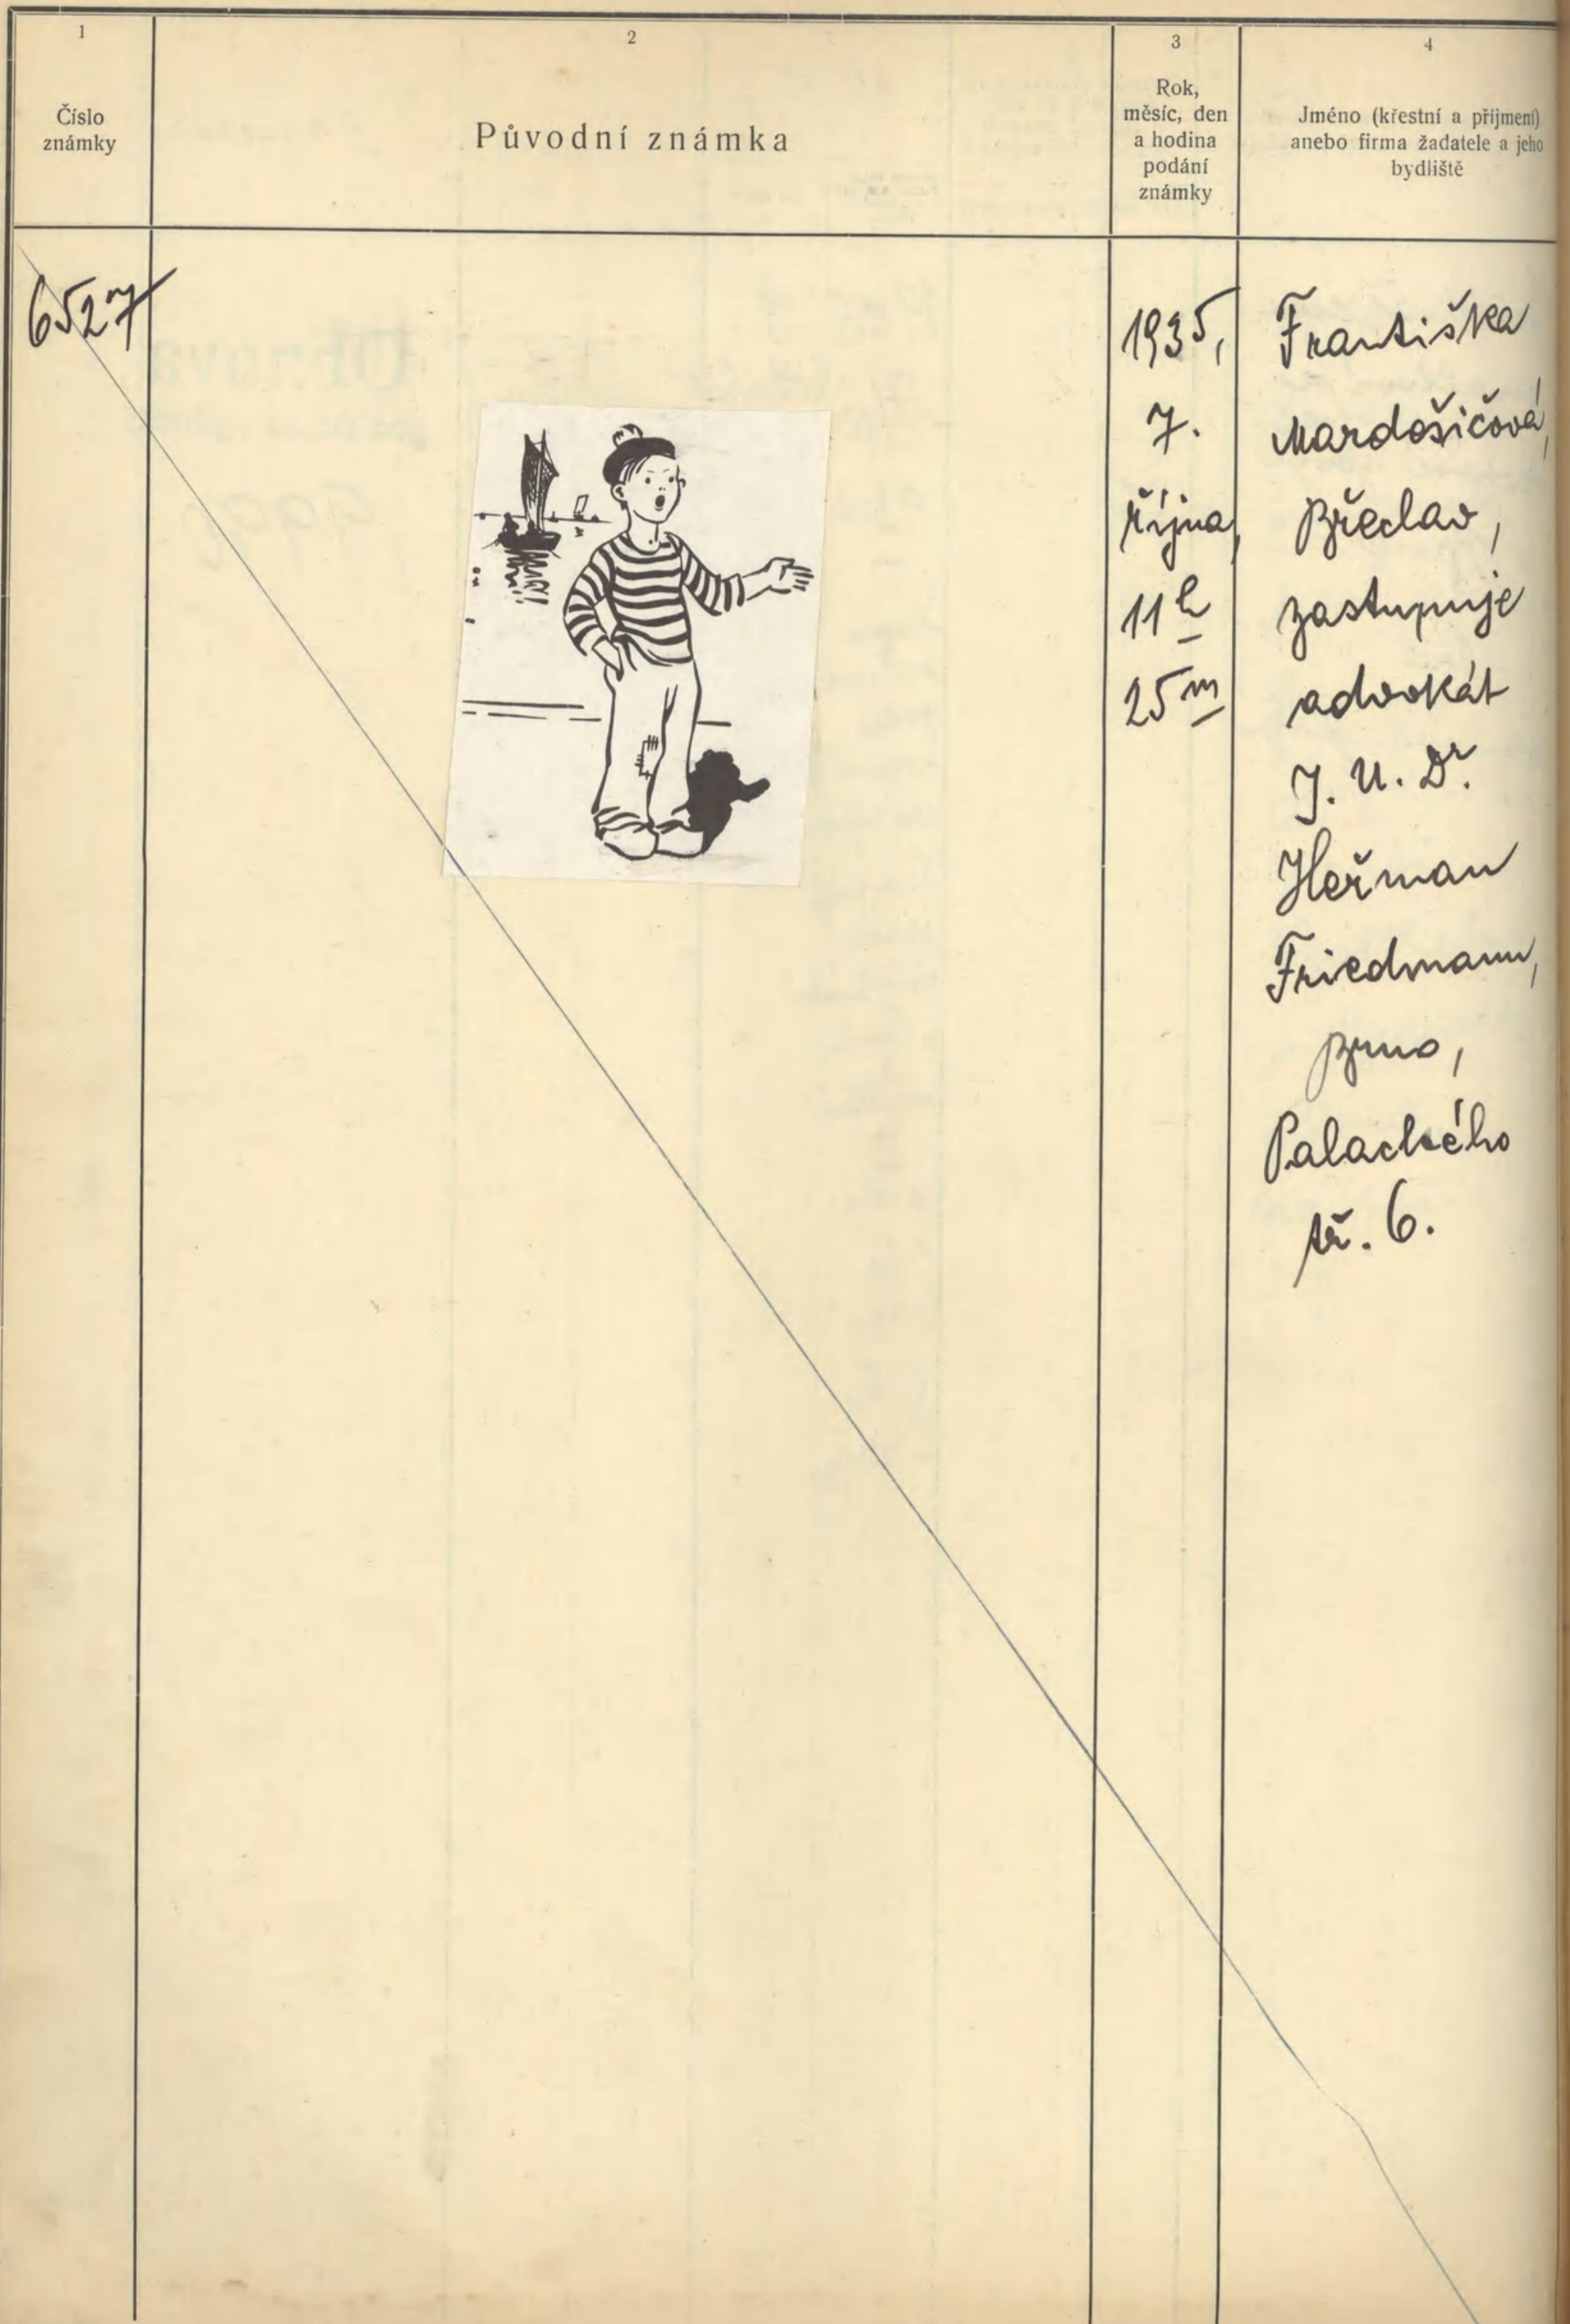 1
Číslo
známky
2
Původní známka
3
Rok,
měsíc, den
a hodina
podání
známky
4
Jméno (křestní a příjmení)
anebo firma žadatele a jeho
bydliště
6527
1935,
7.
října,
11 h
25 m
Františka
Mardošičová,
Břeclav,
zastupuje
advokát
J. U. Dr.
Heřman
Friedmann,
Brno,
Palackého
tř. 6.